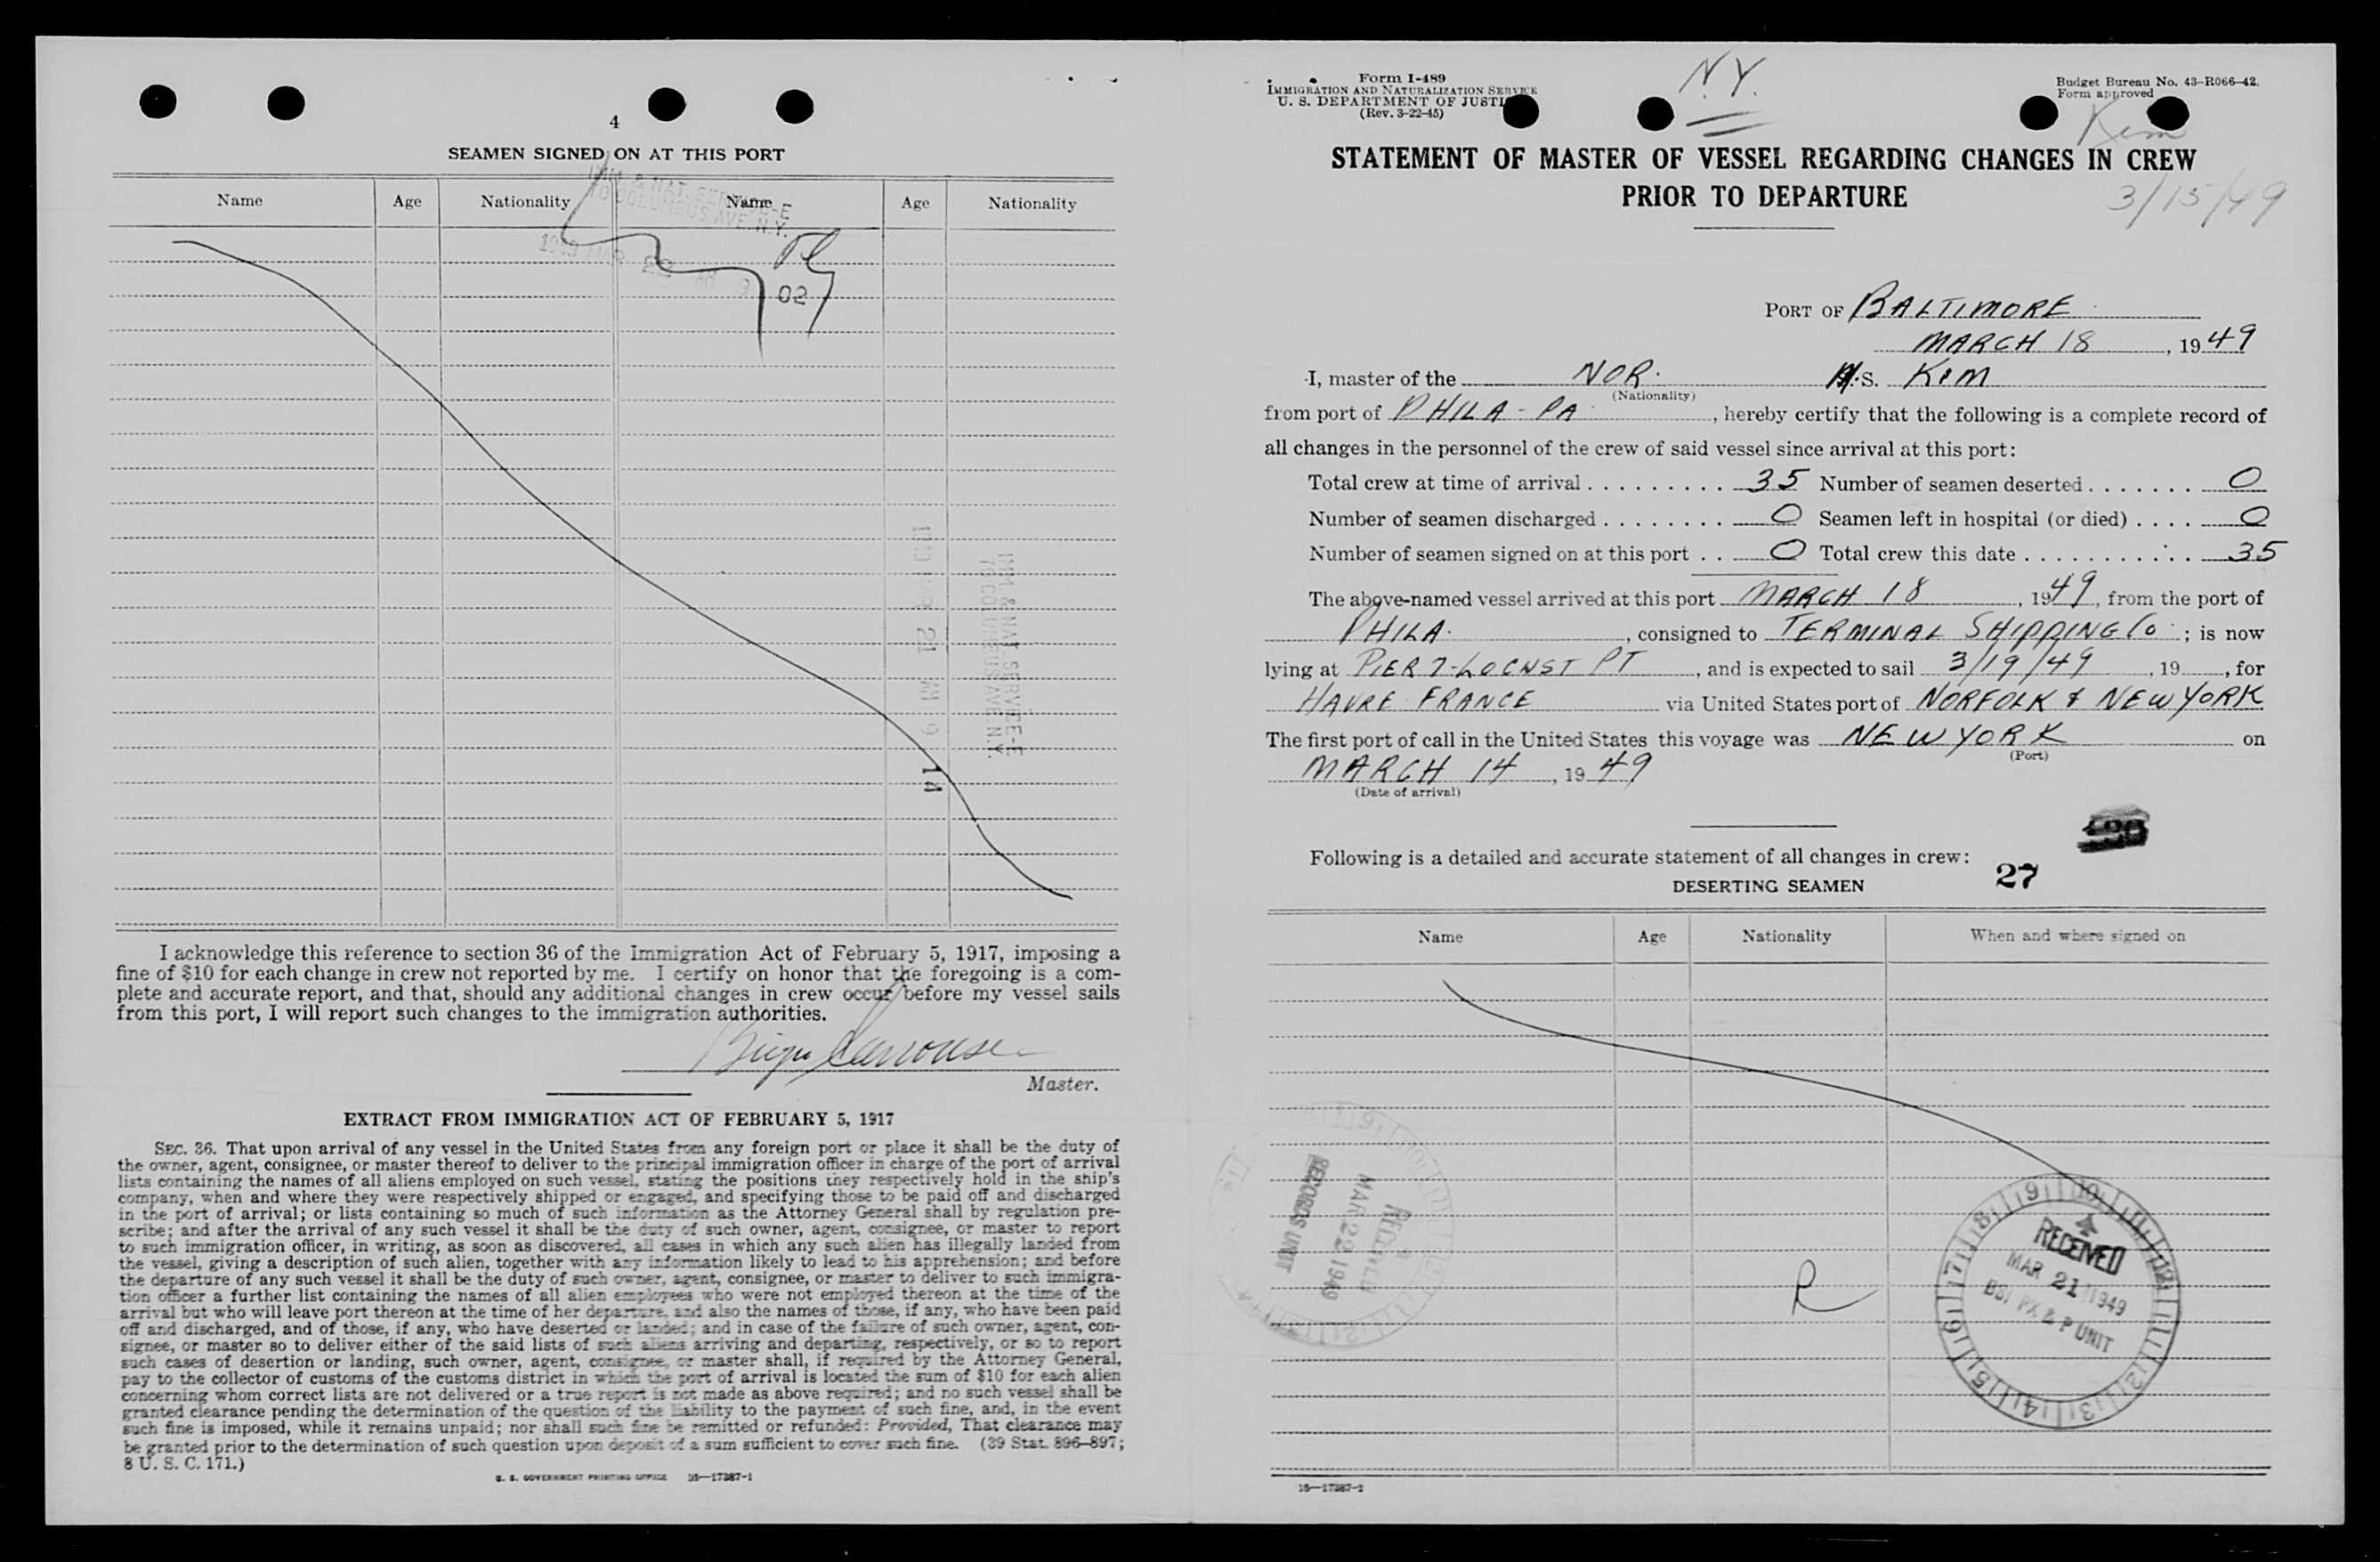 4
SEAMEN SIGNED ON AT THIS PORT
Name Age Nationality Name Age Nationality
IMM. & NAT. SERVICE-E
70 COLUMBUS AVE. N.Y.
1949 MAR 22 AM 9 02
1949 MAR 21 AM 9 14
IMM. & NAT. SERVICE-E
70 COLUMBUS AVE. N.Y.
I acknowledge this reference to section 36 of the Immigration Act of February 5, 1917, imposing a
fine of $10 for each change in crew not reported by me. I certify on honor that the foregoing is a com-
plete and accurate report, and that, should any additional changes in crew occur before my vessel sails
from this port, I will report such changes to the immigration authorities.
Master.
EXTRACT FROM IMMIGRATION ACT OF FEBRUARY 5, 1917
SEC. 36. That upon arrival of any vessel in the United States from any foreign port or place it shall be the duty of
the owner, agent, consignee, or master thereof to deliver to the principal immigration officer in charge of the port of arrival
lists containing the names of all aliens employed on such vessel, stating the positions they respectively hold in the ship's
company, when and where they were respectively shipped or engaged, and specifying those to be paid off and discharged
in the port of arrival; or lists containing so much of such information as the Attorney General shall by regulation pre-
scribe; and after the arrival of any such vessel it shall be the duty of such owner, agent, consignee, or master to report
to such immigration officer, in writing, as soon as discovered, all cases in which any such alien has illegally landed from
the vessel, giving a description of such alien, together with any information likely to lead to his apprehension; and before
the departure of any such vessel it shall be the duty of such owner, agent, consignee, or master to deliver to such immigra-
tion officer a further list containing the names of all alien employees who were not employed thereon at the time of the
arrival but who will leave port thereon at the time of her departure, and also the names of those, if any, who have been paid
off and discharged, and of those, if any, who have deserted or landed; and in case of the failure of such owner, agent, con-
signee, or master so to deliver either of the said lists of such aliens arriving and departing, respectively, or so to report
such cases of desertion or landing, such owner, agent, consignee, or master shall, if required by the Attorney General,
pay to the collector of customs of the customs district in which the port of arrival is located the sum of $10 for each alien
concerning whom correct lists are not delivered or a true report is not made as above required; and no such vessel shall be
granted clearance pending the determination of the question of the liability to the payment of such fine, and, in the event
such fine is imposed, while it remains unpaid; nor shall such fine be remitted or refunded: Provided, That clearance may
be granted prior to the determination of such question upon deposit of a sum sufficient to cover such fine. (39 Stat. 896–897;
8 U. S. C. 171.)
U. S. GOVERNMENT PRINTING OFFICE 16—17387-1
Form I-489
IMMIGRATION AND NATURALIZATION SERVICE
U. S. DEPARTMENT OF JUSTI
(Rev. 3-22-45)
N.Y.
Budget Bureau No. 43-R066-42.
Form approved
Kim
3/15/49
STATEMENT OF MASTER OF VESSEL REGARDING CHANGES IN CREW
PRIOR TO DEPARTURE
PORT OF BALTIMORE
MARCH 18, 1949
I, master of the NOR. M.S. KIM
(Nationality)
from port of PHILA - PA, hereby certify that the following is a complete record of
all changes in the personnel of the crew of said vessel since arrival at this port:
Total crew at time of arrival 35 Number of seamen deserted 0
Number of seamen discharged 0 Seamen left in hospital (or died) 0
Number of seamen signed on at this port 0 Total crew this date 35
The above-named vessel arrived at this port MARCH 18, 1949, from the port of
PHILA., consigned to TERMINAL SHIPPING Co; is now
lying at PIER 7-LOCUST PT, and is expected to sail 3/19/49, 19, for
HAVRE FRANCE via United States port of NORFOLK & NEW YORK
The first port of call in the United States this voyage was NEW YORK on
(Port)
MARCH 14, 1949
(Date of arrival)
Following is a detailed and accurate statement of all changes in crew:
27
DESERTING SEAMEN
Name Age Nationality When and where signed on
RECEIVED
MAR 22 1949
RECORDS UNIT
R
RECEIVED
MAR 21 1949
BSI PX & P UNIT
16—17387-2